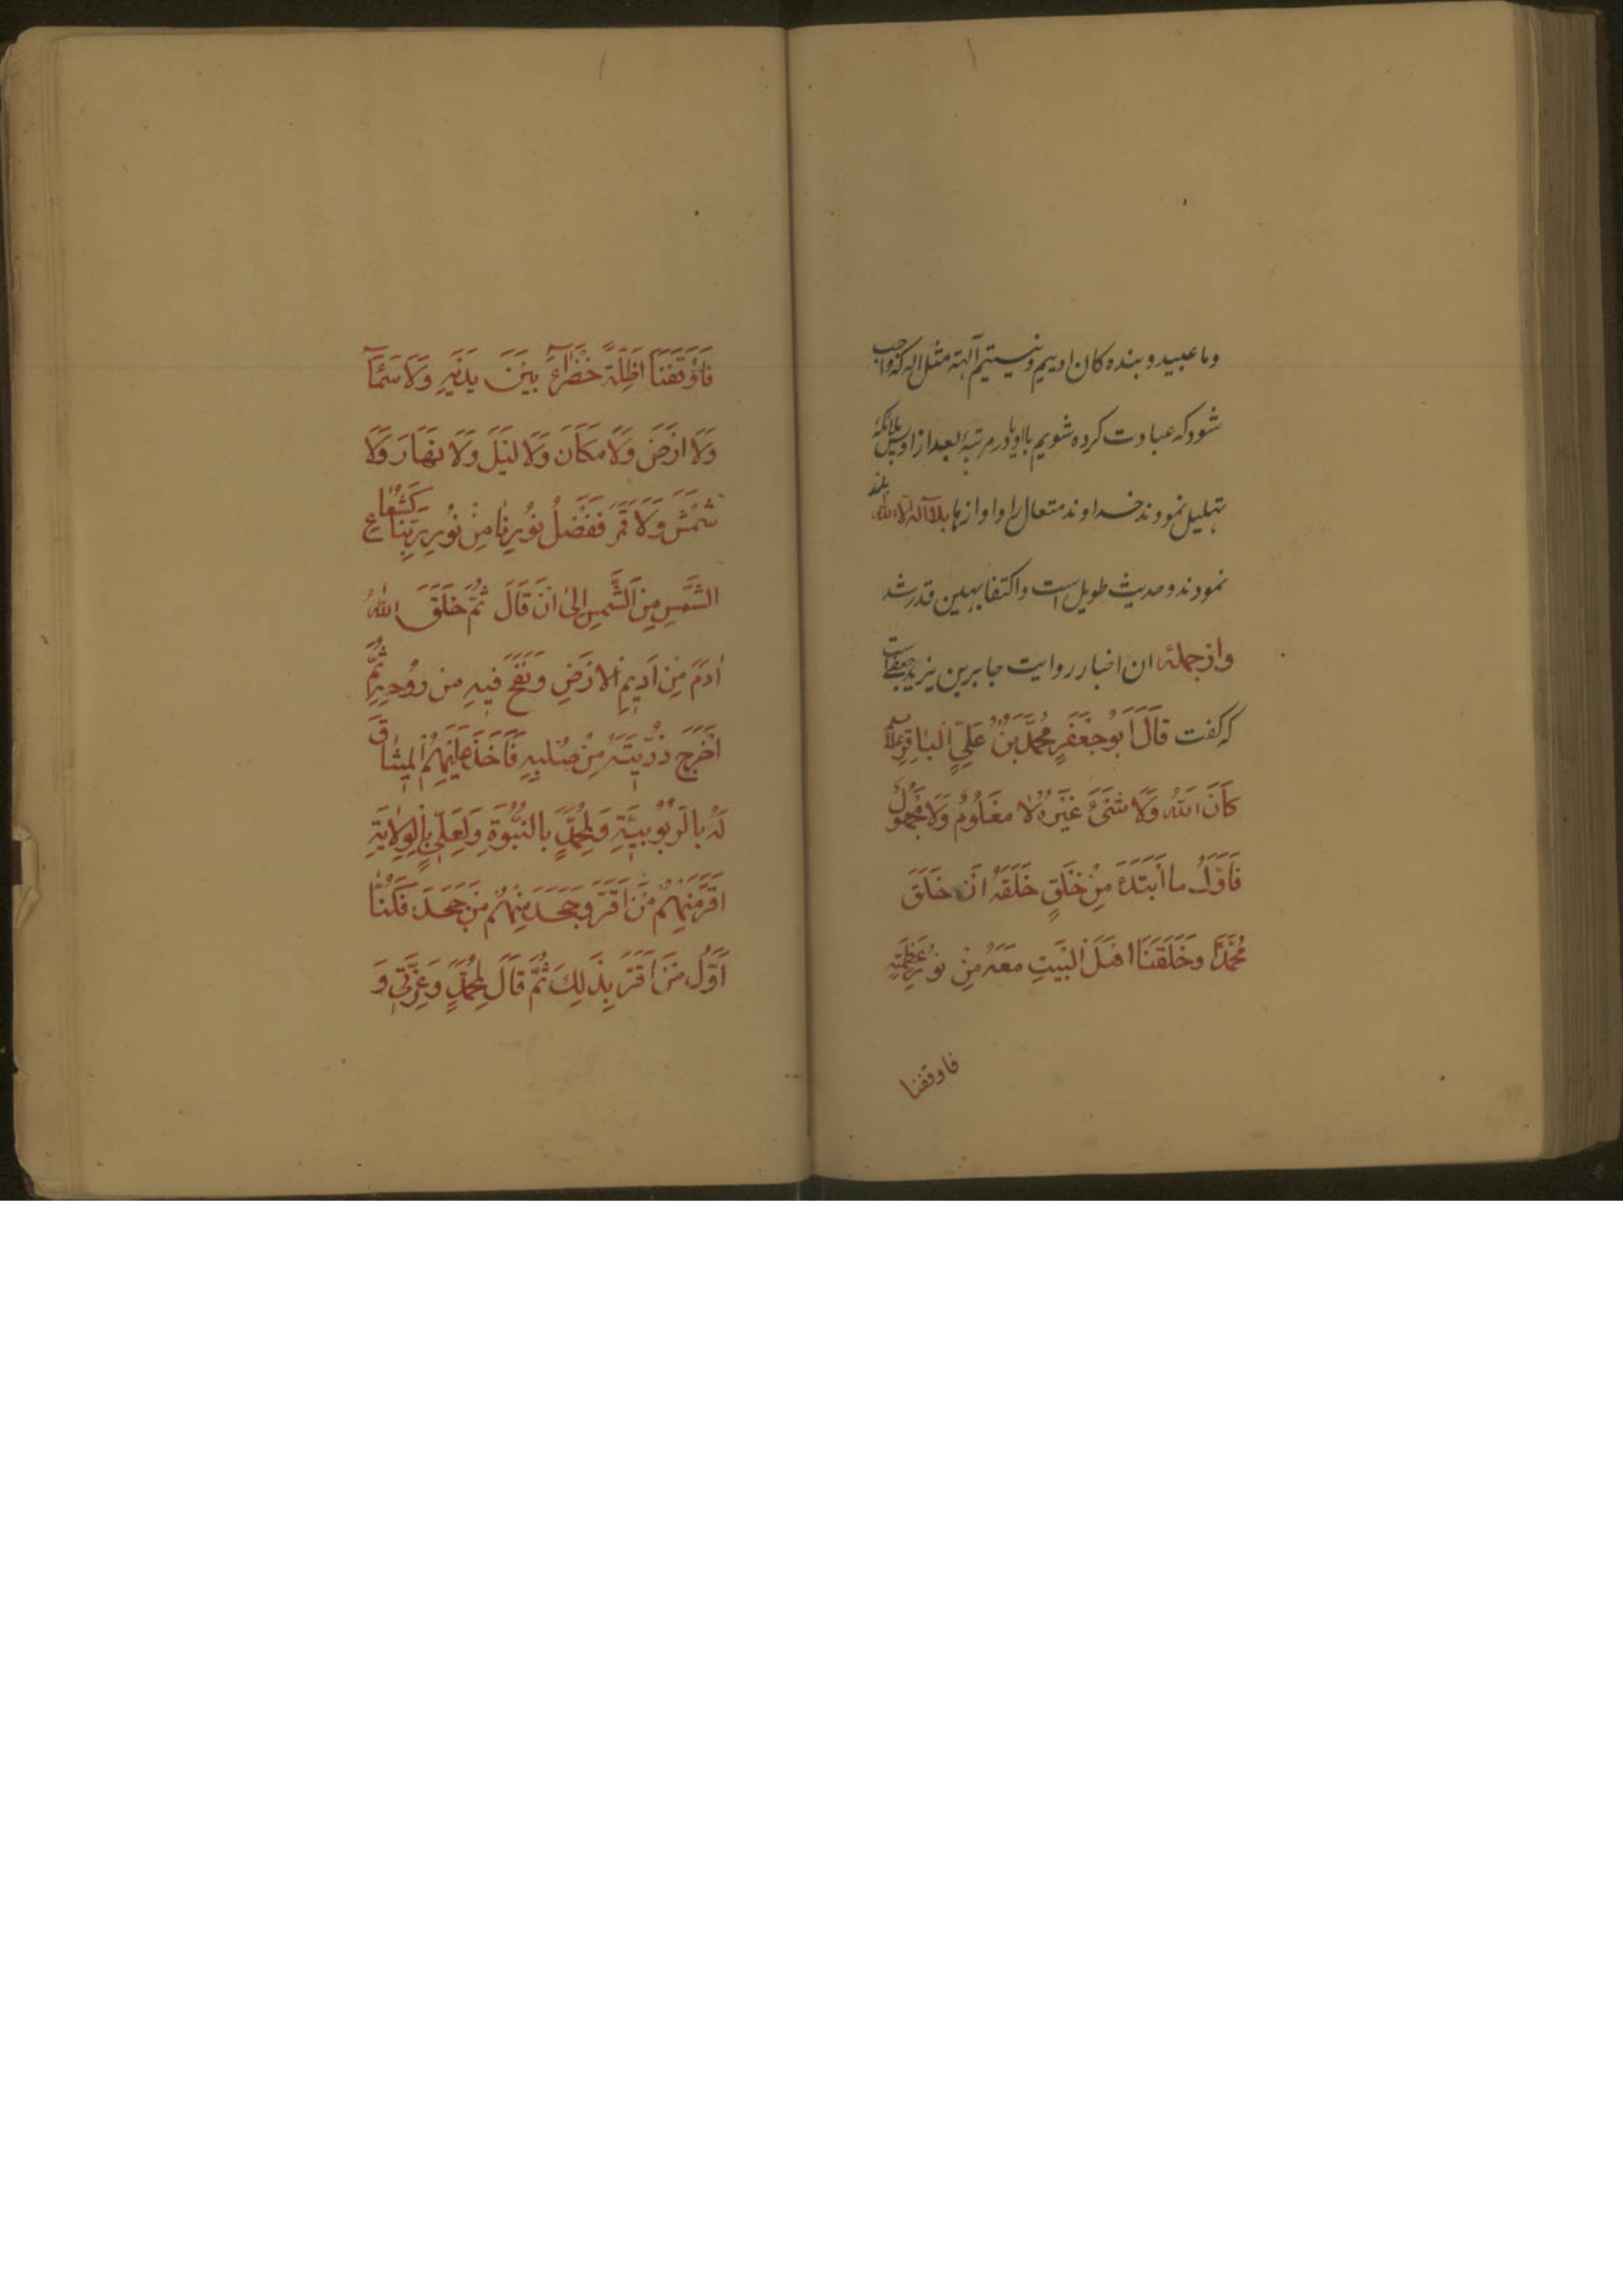 وما عبید و بنده کان اوییم و نیستیم آلهة مثل اله که واجب
شود که عبادت کرده شویم با او یا در مرتبهٔ بعد از او پس ملائکة
تهلیل نمودند خداوند متعال را و اوازها بلا اله الا الله بلند
نمودند و حدیث طویل است و اکتفا بهمین قدر شد
واز جملهٔ ان اخبار روایت جابر بن یزید جعفی است
که گفت قَالَ اَبُو جَعْفَرٍ مُحَمَّدُ بْنُ عَلِيٍّ الْبَاقِرِ
كَانَ اللهُ وَلَا شَيْءَ غَيْرُهُ لَا مَعْلُومٌ وَلَا مَجْهُولٌ
فَاَوَّلُ مَا اَبْتَدَءَ مِنْ خَلْقٍ خَلَقَهُ اَنْ خَلَقَ
مُحَمَّدًا وَخَلَقَنَا اَهْلَ الْبَيْتِ مَعَهُ مِنْ نُورِ عَظَمَتِهِ
فاوقفنا
فَاَوْقَفَنَا اَظِلَّةً خَضْرَآءَ بَيْنَ يَدَيْهِ وَلَا سَمَآءَ
وَلَا اَرْضَ وَلَا مَكَانَ وَلَا لَيْلَ وَلَا نَهَارَ وَلَا
شَمْسَ وَلَا قَمَرَ فَفَضْلُ نُورِنَا مِنْ نُورِ رَبِّنَا كَشُعَاعِ
الشَّمْسِ مِنَ الشَّمْسِ اِلىٰ اَنْ قَالَ ثُمَّ خَلَقَ اللهُ
اٰدَمَ مِنْ اَدِيمِ الْاَرْضِ وَنَفَخَ فِيهِ مِنْ رُوحِهِ ثُمَّ
اَخْرَجَ ذُرِّيَّتَهُ مِنْ صُلْبِهِ فَاَخَذَ عَلَيْهِمُ الْمِيثَاقَ
لَهُ بِالرُّبُوبِيَّةِ وَلِمُحَمَّدٍ بِالنُّبُوَّةِ وَلِعَلِيٍّ بِالْوِلَايَةِ
اَقَرَّ مِنْهُمْ مَنْ اَقَرَّ وَجَحَدَ مِنْهُمْ مَنْ جَحَدَ فَكُنَّا
اَوَّلُ مَنْ اَقَرَّ بِذٰلِكَ ثُمَّ قَالَ لِمُحَمَّدٍ وَعِزَّتِي وَ